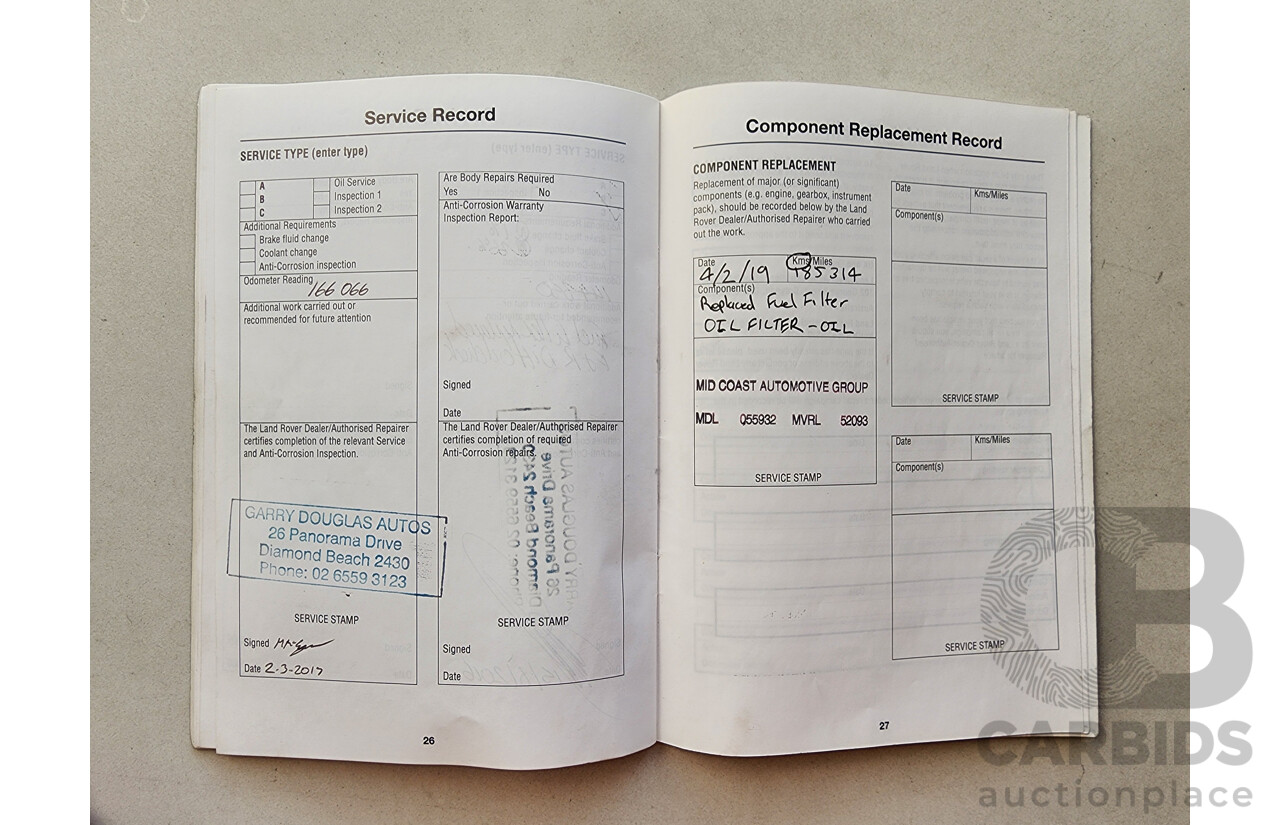 Service Record
SERVICE TYPE (enter type)
A
B
C
Oil Service
Inspection 1
Inspection 2
Additional Requirements
Brake fluid change
Coolant change
Anti-Corrosion inspection
Odometer Reading
166 066
Additional work carried out or
recommended for future attention
The Land Rover Dealer/Authorised Repairer
certifies completion of the relevant Service
and Anti-Corrosion Inspection.
GARRY DOUGLAS AUTOS
26 Panorama Drive
Diamond Beach 2430
Phone: 02 6559 3123
SERVICE STAMP
Signed
Date 2-3-2017
Are Body Repairs Required
Yes No
Anti-Corrosion Warranty
Inspection Report:
Signed
Date
The Land Rover Dealer/Authorised Repairer
certifies completion of required
Anti-Corrosion repairs.
SERVICE STAMP
Signed
Date
26
Component Replacement Record
COMPONENT REPLACEMENT
Replacement of major (or significant)
components (e.g. engine, gearbox, instrument
pack), should be recorded below by the Land
Rover Dealer/Authorised Repairer who carried
out the work.
Date Kms/Miles
4/2/19 185314
Component(s)
Replaced Fuel Filter
OIL FILTER - OIL
MID COAST AUTOMOTIVE GROUP
MDL 055932 MVRL 52093
SERVICE STAMP
Date Kms/Miles
Component(s)
SERVICE STAMP
Date Kms/Miles
Component(s)
SERVICE STAMP
27
CB
CARBIDS
auctionplace